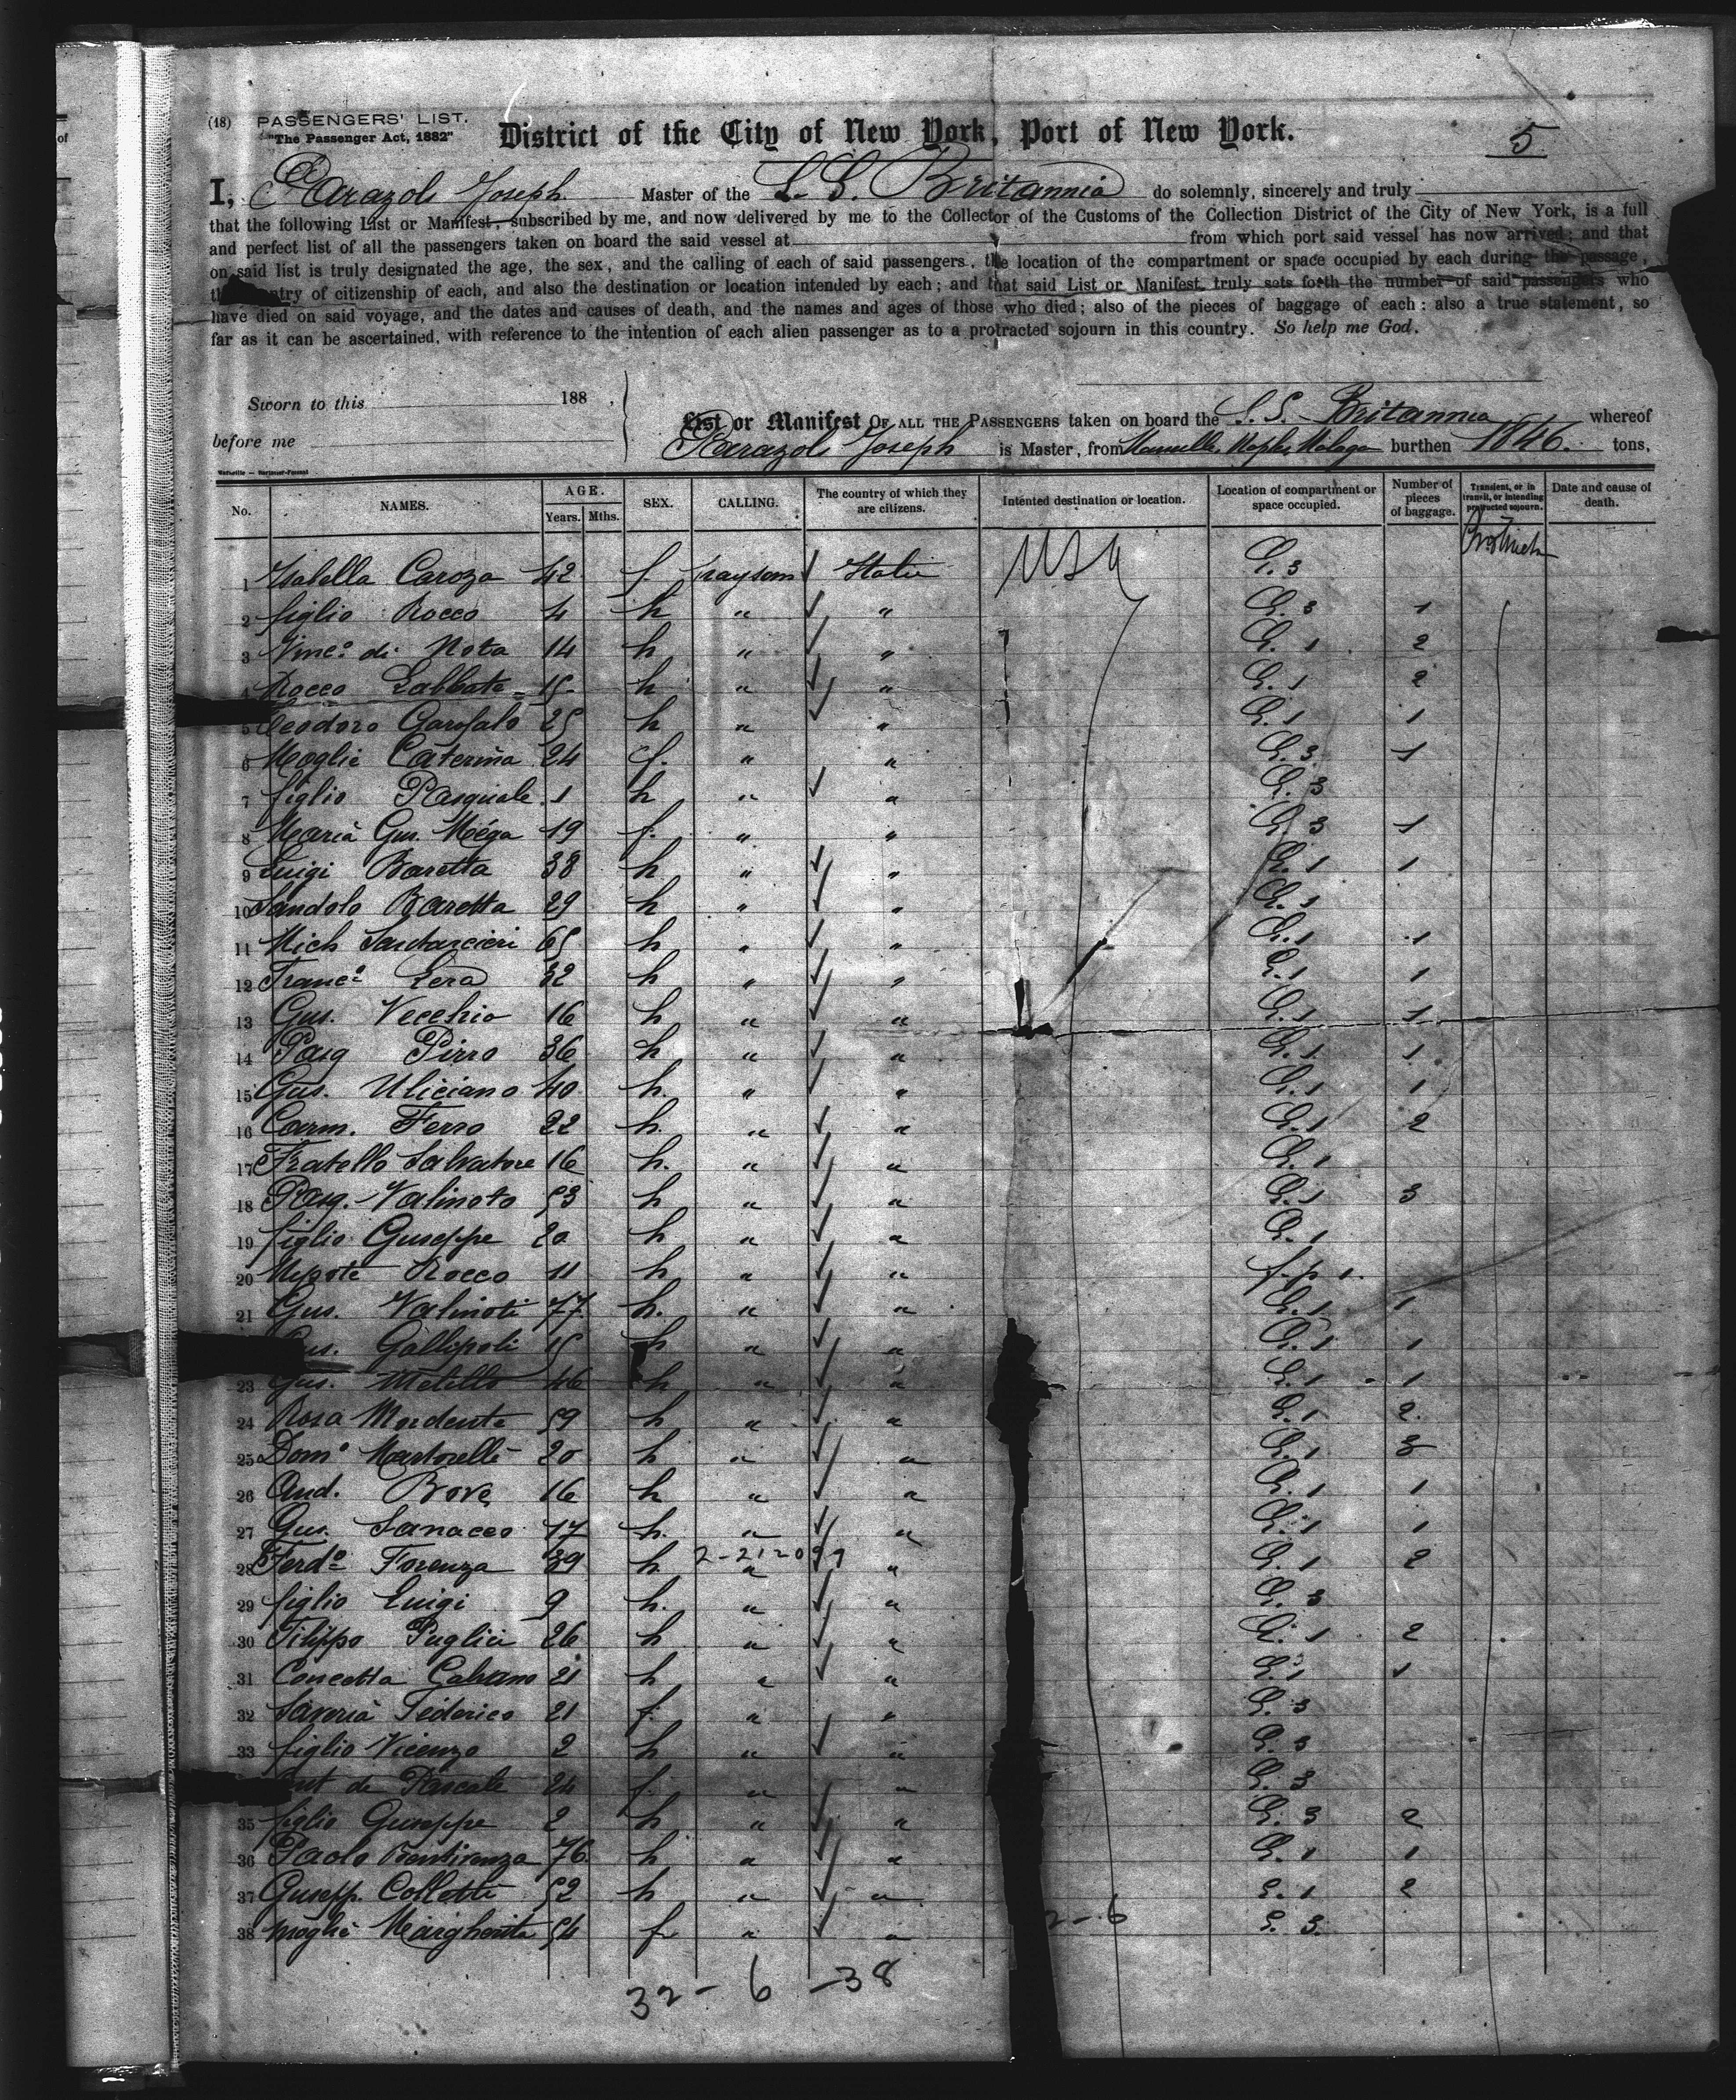 (18) PASSENGERS' LIST.
"The Passenger Act, 1882"
District of the City of New York, Port of New York.
5
I, Joseph Master of the S. S. Britannia do solemnly, sincerely and truly
that the following List or Manifest, subscribed by me, and now delivered by me to the Collector of the Customs of the Collection District of the City of New York, is a full
and perfect list of all the passengers taken on board the said vessel at from which port said vessel has now arrived; and that
on said list is truly designated the age, the sex, and the calling of each of said passengers, the location of the compartment or space occupied by each during the passage,
the country of citizenship of each, and also the destination or location intended by each; and that said List or Manifest truly sets forth the number of said passengers who
have died on said voyage, and the dates and causes of death, and the names and ages of those who died; also of the pieces of baggage of each: also a true statement, so
far as it can be ascertained, with reference to the intention of each alien passenger as to a protracted sojourn in this country. So help me God.
Sworn to this 188 ,
before me
List or Manifest OF ALL THE PASSENGERS taken on board the S. S. Britannia whereof
Joseph is Master, from Marseille, Naples, Malaga burthen 1846. tons.
No. NAMES. AGE. Years. Mths. SEX. CALLING. The country of which they are citizens. Intented destination or location. Location of compartment or space occupied. Number of pieces of baggage. Transient, or in transit, or intending protracted sojourn. Date and cause of death.
1 Isabella Caroza 42 f. Italie USA 3
2 figlio Rocco 4 h " " 3 1
3 Vinc.o di Nota 14 h " " 1 2
4 Rocco Labbate 15 h " " 1 2
5 Teodoro Garofalo 25 h " " 1 1
6 Moglie Caterina 24 f. " " 3 1
7 figlio Pasquale 1 h " " 3
8 Maria Gius. 19 f. " " 3 1
9 Luigi Baretta 38 h " " 1 1
10 Baretta 29 h " " 1
11 Mich 65 h " " 1 1
12 Franc.o 32 h " " 1 1
13 Gius. Vecchio 16 h " " 1 1
14 Pasq Pirro 36 h " " 1 1
15 Gius. Uliciano 40 h. " " 1 1
16 Carm. Ferro 22 h. " " 1 2
17 Fratello Salvatore 16 h. " " 1
18 Pasq. Valinoto 53 h " " 1 3
19 figlio Giuseppe 20 h " " 1
20 Nipote Rocco 11 h " "
21 Gius. Valinoti 77 h. " " 1 1
Gallipoli 15 h " " 1 1
23 Gius. Metello 46 h " " 1 1
24 Rosa Mordente 59 h " " 1 2
25 Dom.o Martorelli 20 h " " 1 3
26 And. Bove 16 h " " 1 1
27 Gius. 17 h. " " 1 1
2-212099
28 Ferd.o Forenza 39 h " " 1 2
29 figlio Luigi 9 h. " " 3
30 Filippo Puglia 26 h " " 1 2
31 Concetta 21 h " " 1 1
32 Saveria Federico 21 f. " " 3
33 figlio Vicenzo 2 h " " 3
de Pascale 24 f. " " 3
35 figlio Giuseppe 2 h " " 3 2
36 Paolo 76 h " " 1 1
37 Giusepp. Colletti 52 h " " 1 2
38 moglie Margherita 54 f " " 3
32 - 6 - 38